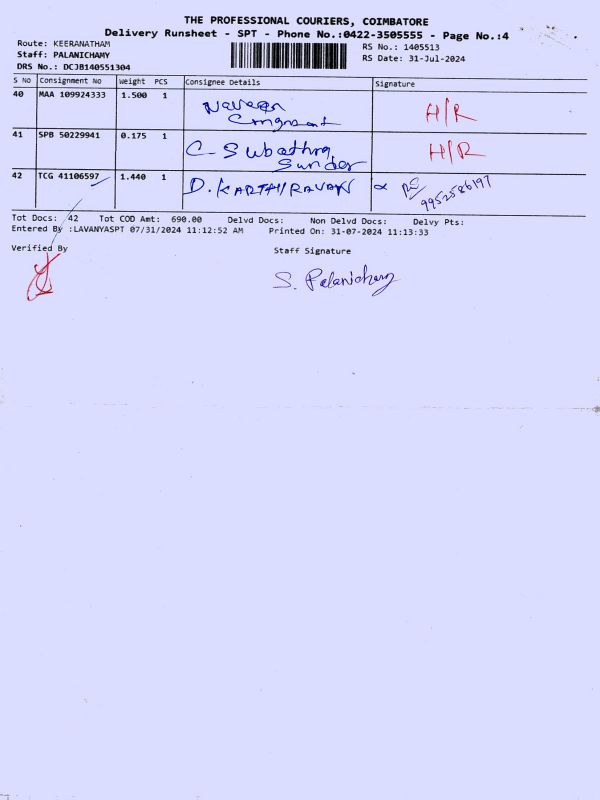 THE PROFESSIONAL COURIERS, COIMBATORE
Delivery Runsheet - SPT - Phone No.:0422-3505555 - Page No.:4
Route: KEERANATHAM
Staff: PALANICHAMY
DRS No.: DCJB140551304
RS No.: 1405513
RS Date: 31-Jul-2024
S No Consignment No Weight PCS Consignee Details Signature
40 MAA 109924333 1.500 1 Naveen H/R
41 SPB 50229941 0.175 1 C. Subathra Sunder H/R
42 TCG 41106597 1.440 1 D. KARTHIRAVAN 9952586197
Tot Docs: 42 Tot COD Amt: 690.00 Delvd Docs: Non Delvd Docs: Delvy Pts:
Entered By :LAVANYASPT 07/31/2024 11:12:52 AM Printed On: 31-07-2024 11:13:33
Verified By Staff Signature
S. Palanichamy